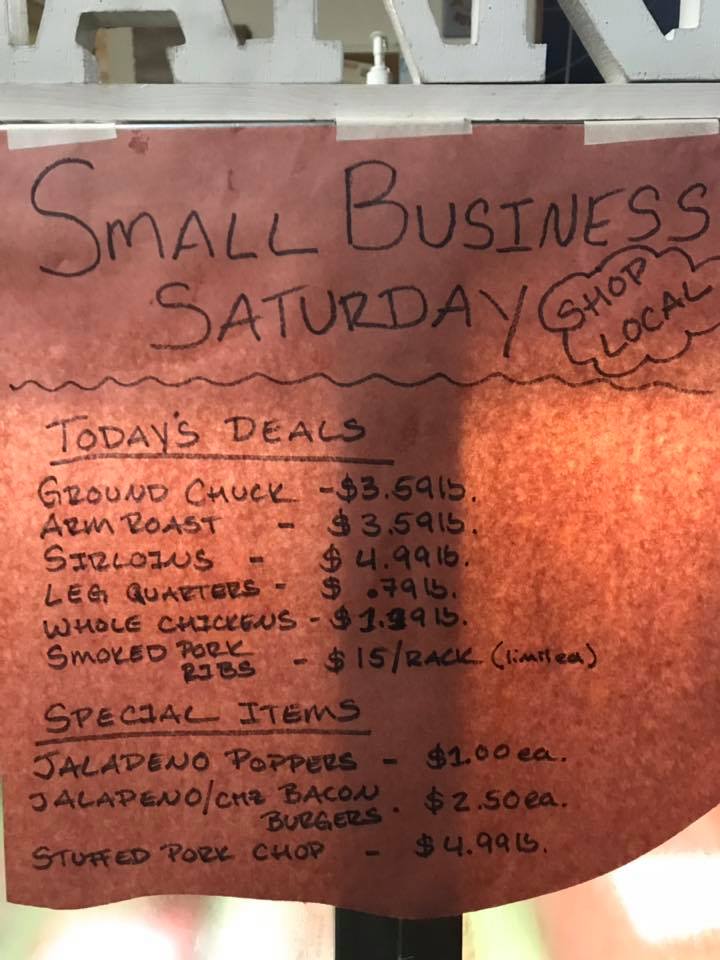 SMALL BUSINESS
SATURDAY
SHOP
LOCAL
TODAY'S DEALS
GROUND CHUCK - $3.59 lb.
ARM ROAST - $3.59 lb.
SIRLOINS - $4.99 lb.
LEG QUARTERS - $ .79 lb.
WHOLE CHICKENS - $1.19 lb.
SMOKED PORK
RIBS - $15/RACK (limited)
SPECIAL ITEMS
JALAPENO POPPERS - $1.00 ea.
JALAPENO/CHZ BACON
BURGERS. $2.50 ea.
STUFFED PORK CHOP - $4.99 lb.